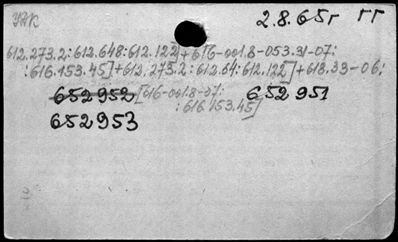 УДК 2.8.65г гг
612.273.2:612.648:612.122]+616-001.8-053.31-07:
:616.153.45]+612.273.2:612.64:612.122]+618.33-06:
652952 [616-001.8-07: 652951
:616.153.45]
652953